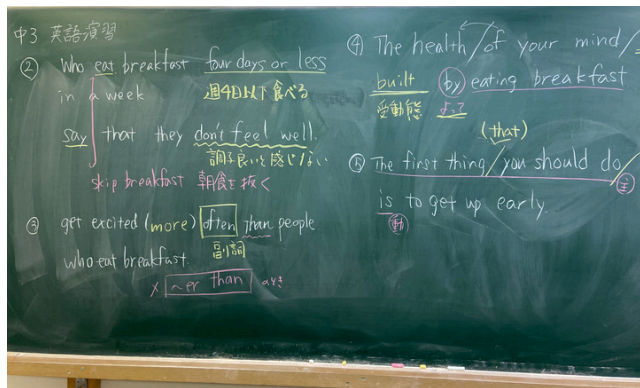 中3 英語演習
② who eat breakfast four days or less
in a week 週4日以下食べる
say that they don't feel well.
調子良いと感じない
skip breakfast 朝食を抜く
③ get excited (more) often than people
副詞
who eat breakfast.
× ~er than のとき
④ The health / of your mind /
built by eating breakfast
受動態 よって
(that)
⑤ The first thing / you should do /
主
is to get up early.
動